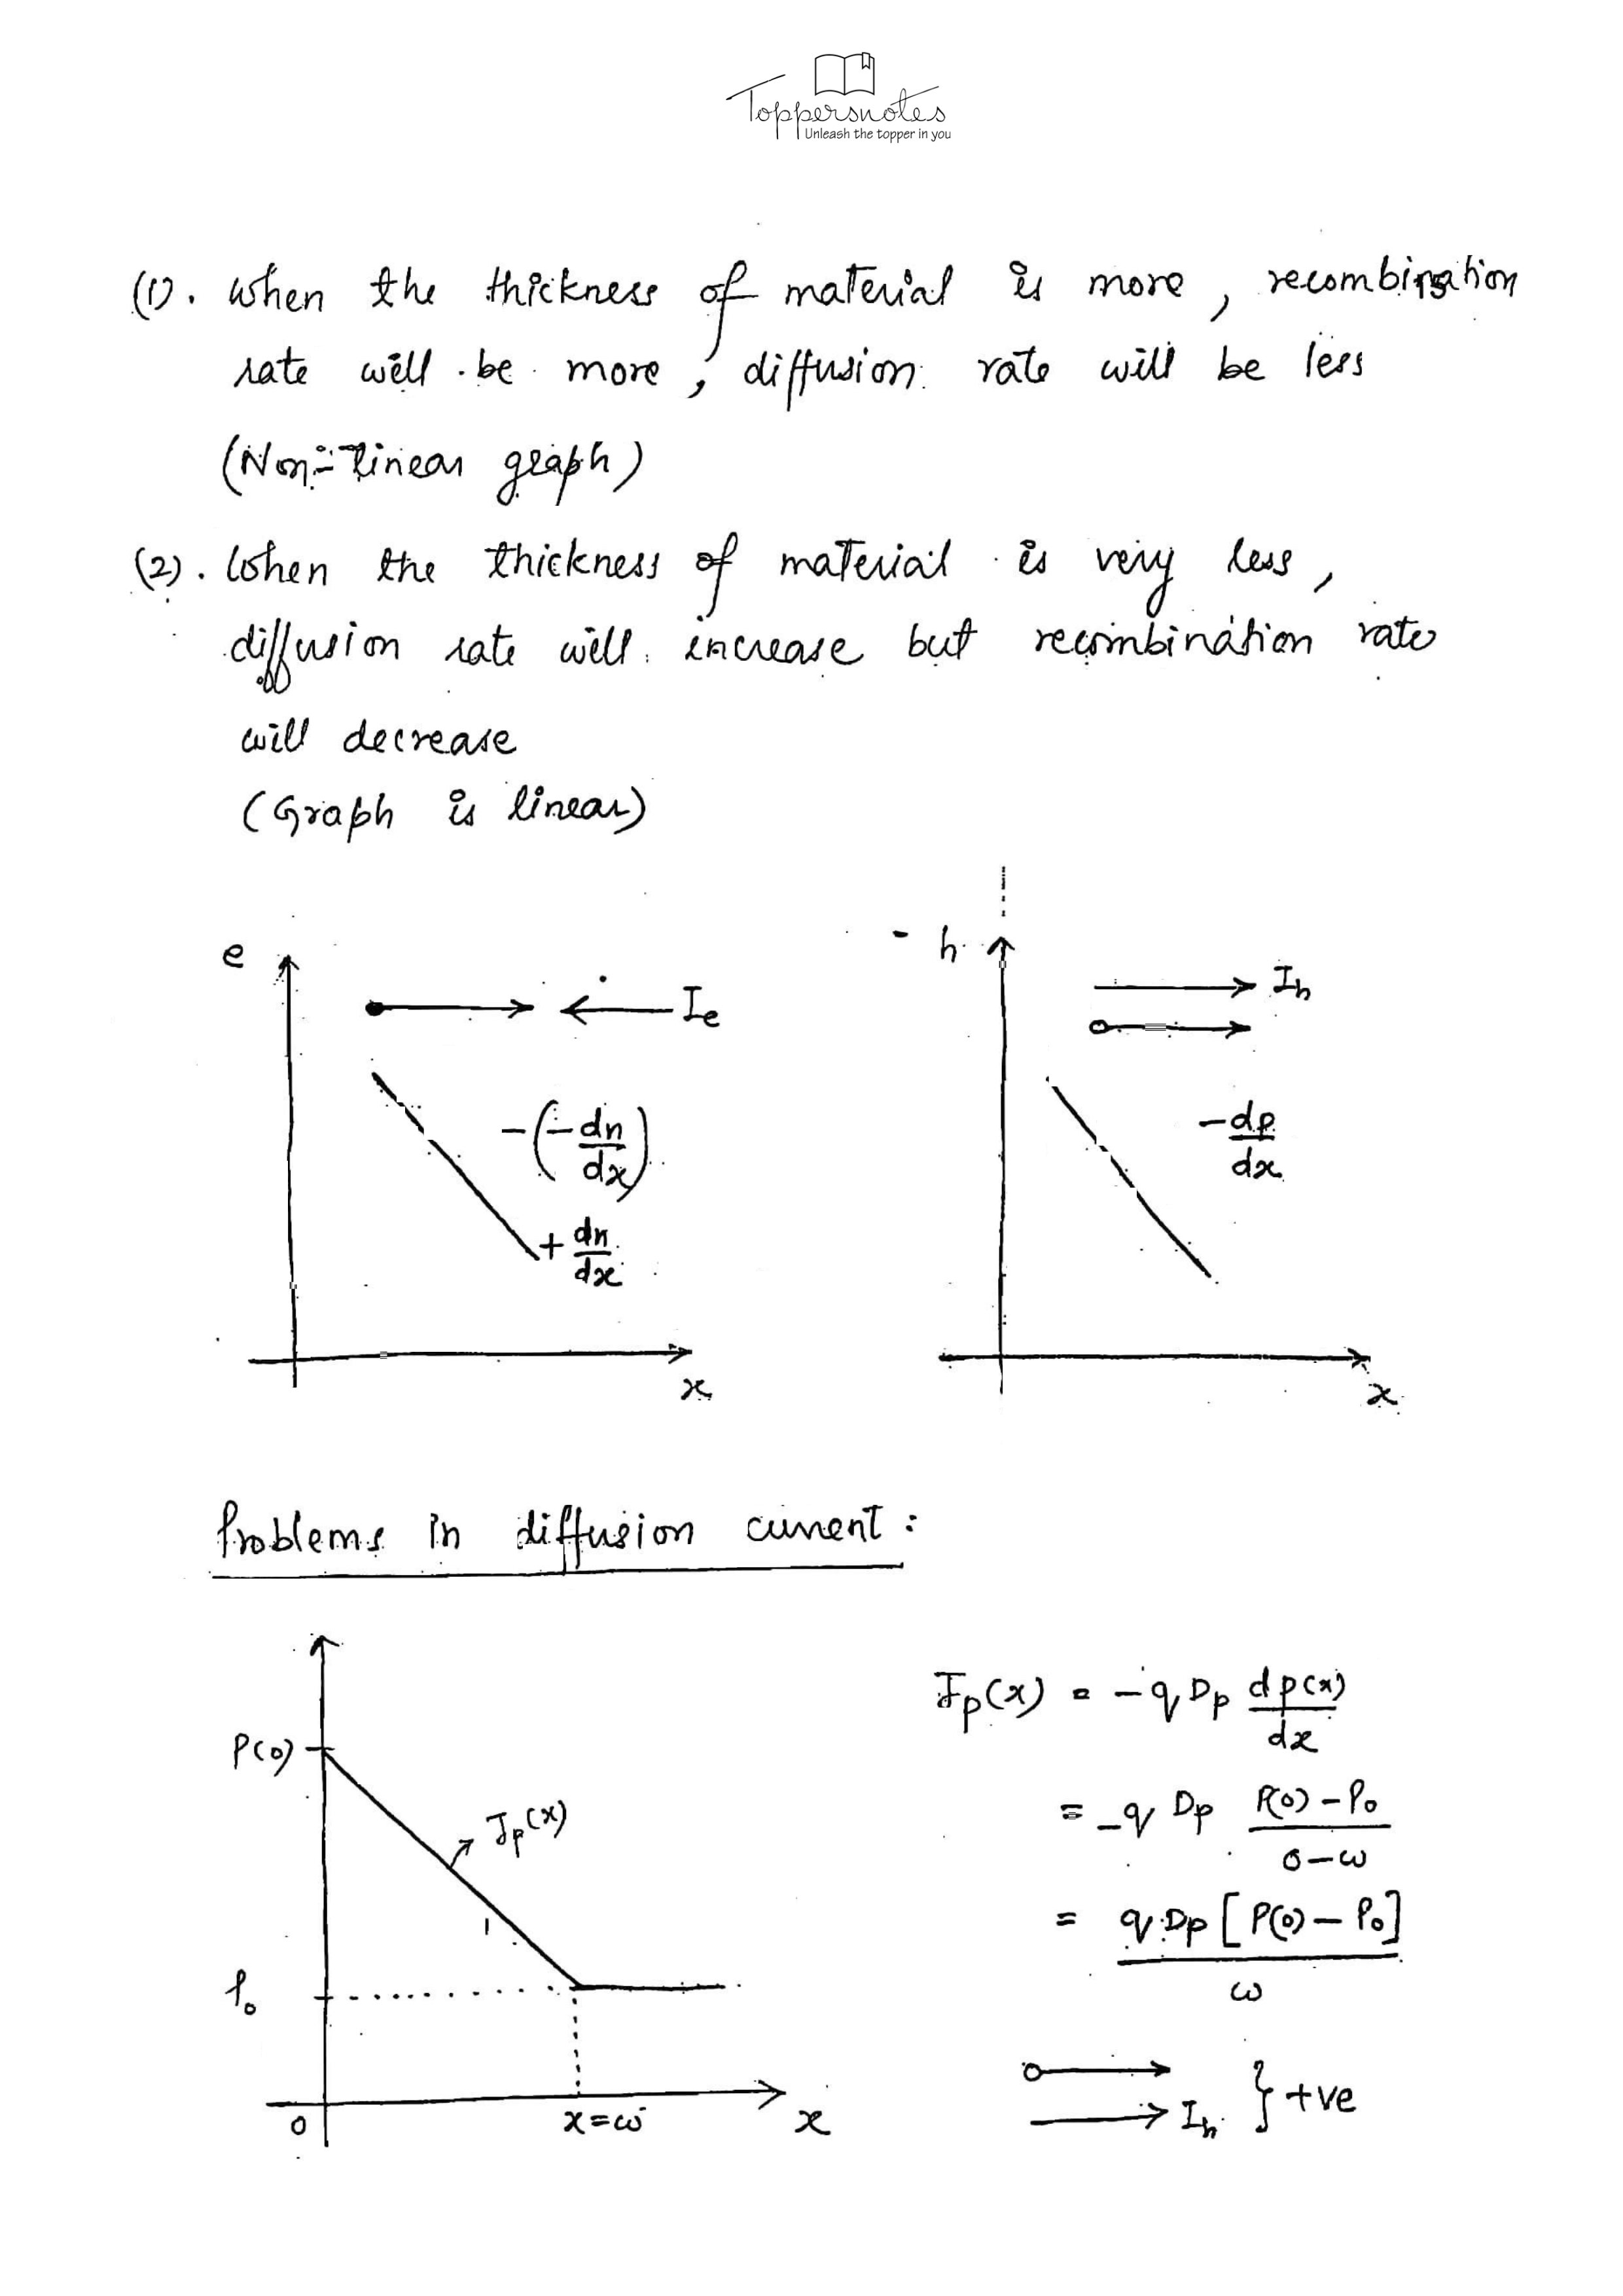 Toppersnotes
Unleash the topper in you
(1). When the thickness of material is more, recombination
rate will be more, diffusion rate will be less
(Non-linear graph)
(2). When the thickness of material is very less,
diffusion rate will increase but recombination rate
will decrease
(Graph is linear)
e
I_e
-(-dn/dx)
+ dn/dx
x
h
I_h
-dp/dx
x
Problems in diffusion current :
P(0)
J_p(x)
P_0
0
x=ω
x
J_p(x) = -q D_p dp(x)/dx
= -q D_p (P(0) - P_0)/(0-ω)
= q D_p [P(0) - P_0]/ω
I_h } +ve